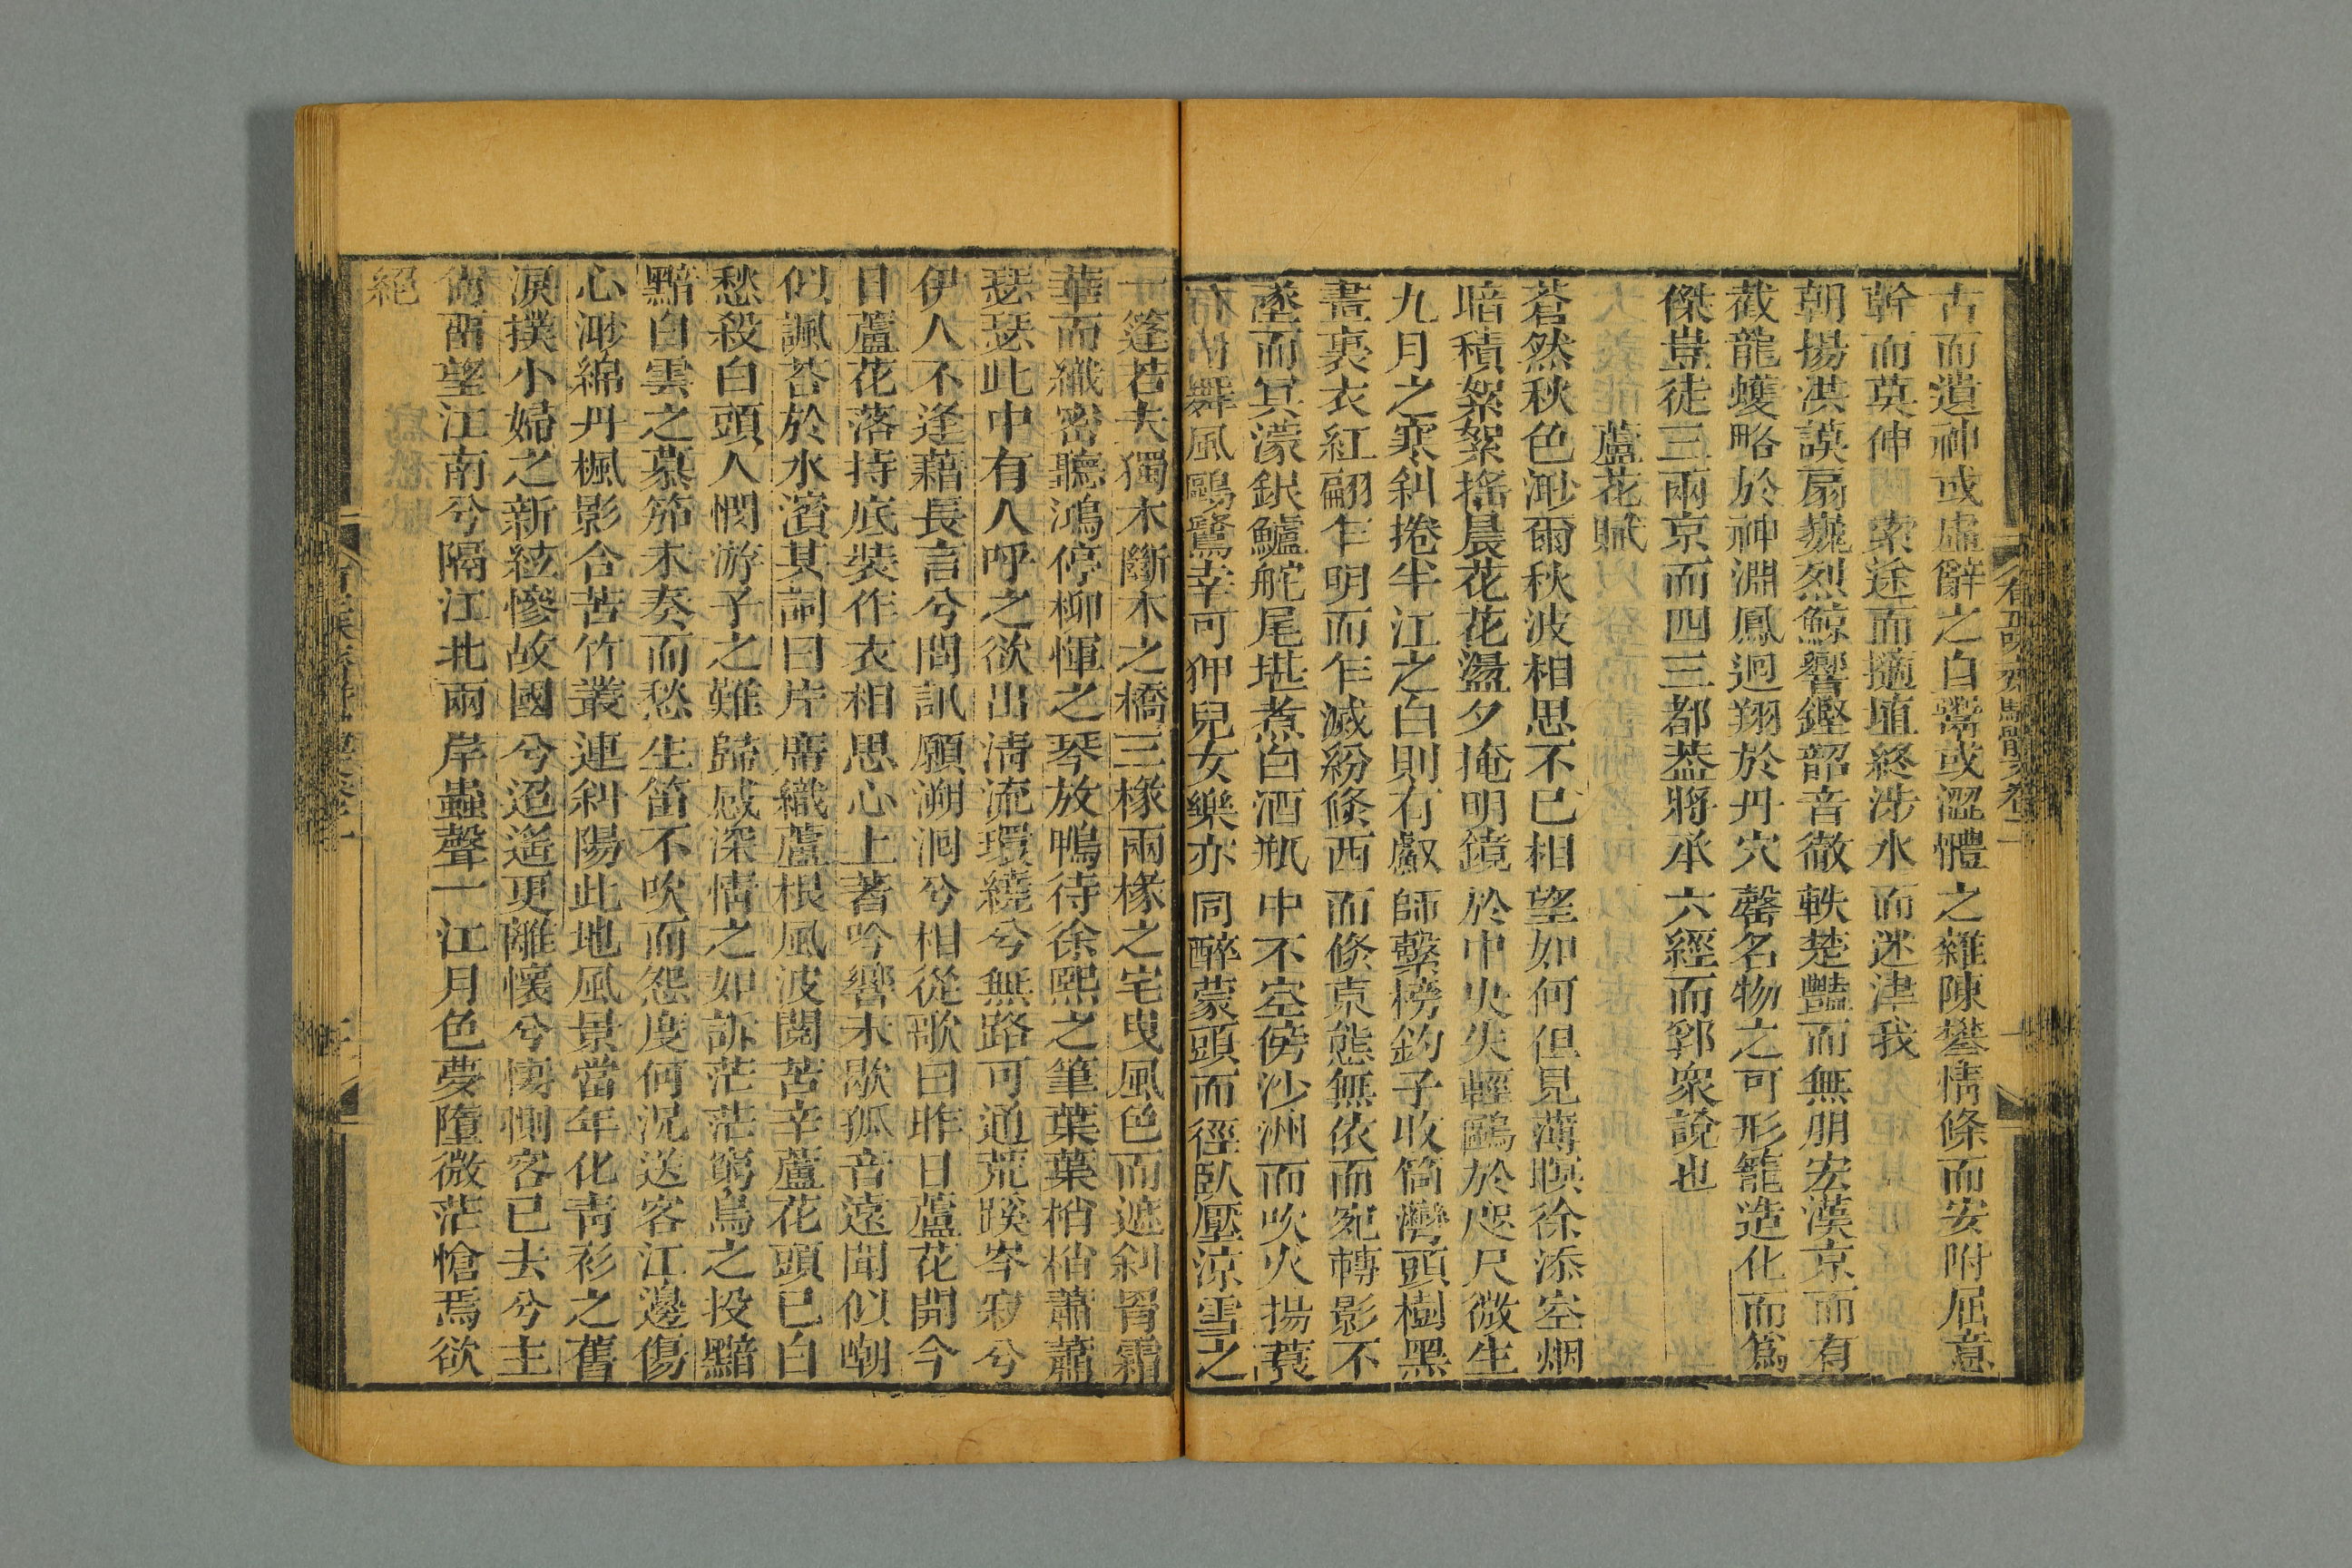 古而遺神或虛辭之白鬻或澀體之雜陳攀情條而安附屈意
幹而莫伸 索途而擿埴終涉水而迷津我
朝揚洪謨扇巍烈鯨響鏗韶音徹軼楚豔而無朋宏漢京而有
截龍蠖略於神淵鳳迥翔於丹穴罄名物之可形籠造化而爲
傑豈徒三兩京而四三都葢將承六經而郛衆說也
蘆花賦
蒼然秋色渺爾秋波相思不已相望如何但見薄暝徐添空烟
暗積絮絮搖晨花花盪夕掩明鏡於中央失輕鷗於咫尺微生
九月之寒糾捲半江之白則有䱷師繫榜釣子收筒灣頭樹黑
晝裏衣紅翩乍明而乍滅紛倏西而倏東態無依而宛轉影不
墜而冥濛銀鱸舵尾堪煮白酒瓶中不空傍沙洲而吹火揚蓑
舞風鷗鷺幸可狎兒女樂亦同醉蒙頭而徑臥壓涼雪之
一篷若夫獨木斷木之橋三椽兩椽之宅曳風色而遮糾罥霜
華而織密聽鴻停柳惲之琴放鴨待徐熙之筆葉葉梢梢蕭蕭
瑟瑟此中有人呼之欲出淸流環繞兮無路可通荒蹊岑寂兮
伊人不逢藉長言兮問訊願溯洄兮相從歌曰昨日蘆花開今
日蘆花落持底裝作衣相思心上著吟響未歇孤音遠聞似嘲
似諷荅於水濱其詞曰片席織蘆根風波閱苦辛蘆花頭已白
愁殺白頭人憫游子之難歸感深情之如訴茫茫窮鳥之投黯
黯白雲之慕笳未奏而愁生笛不吹而怨度何況送客江邊傷
心渺綿丹楓影合苦竹叢連糾陽此地風景當年化靑衫之舊
淚撲小婦之新絃慘故國兮迢遙更離懷兮悽惻客已去兮主
尙留望江南兮隔江北兩岸蟲聲一江月色夢墮微茫愴焉欲
絕